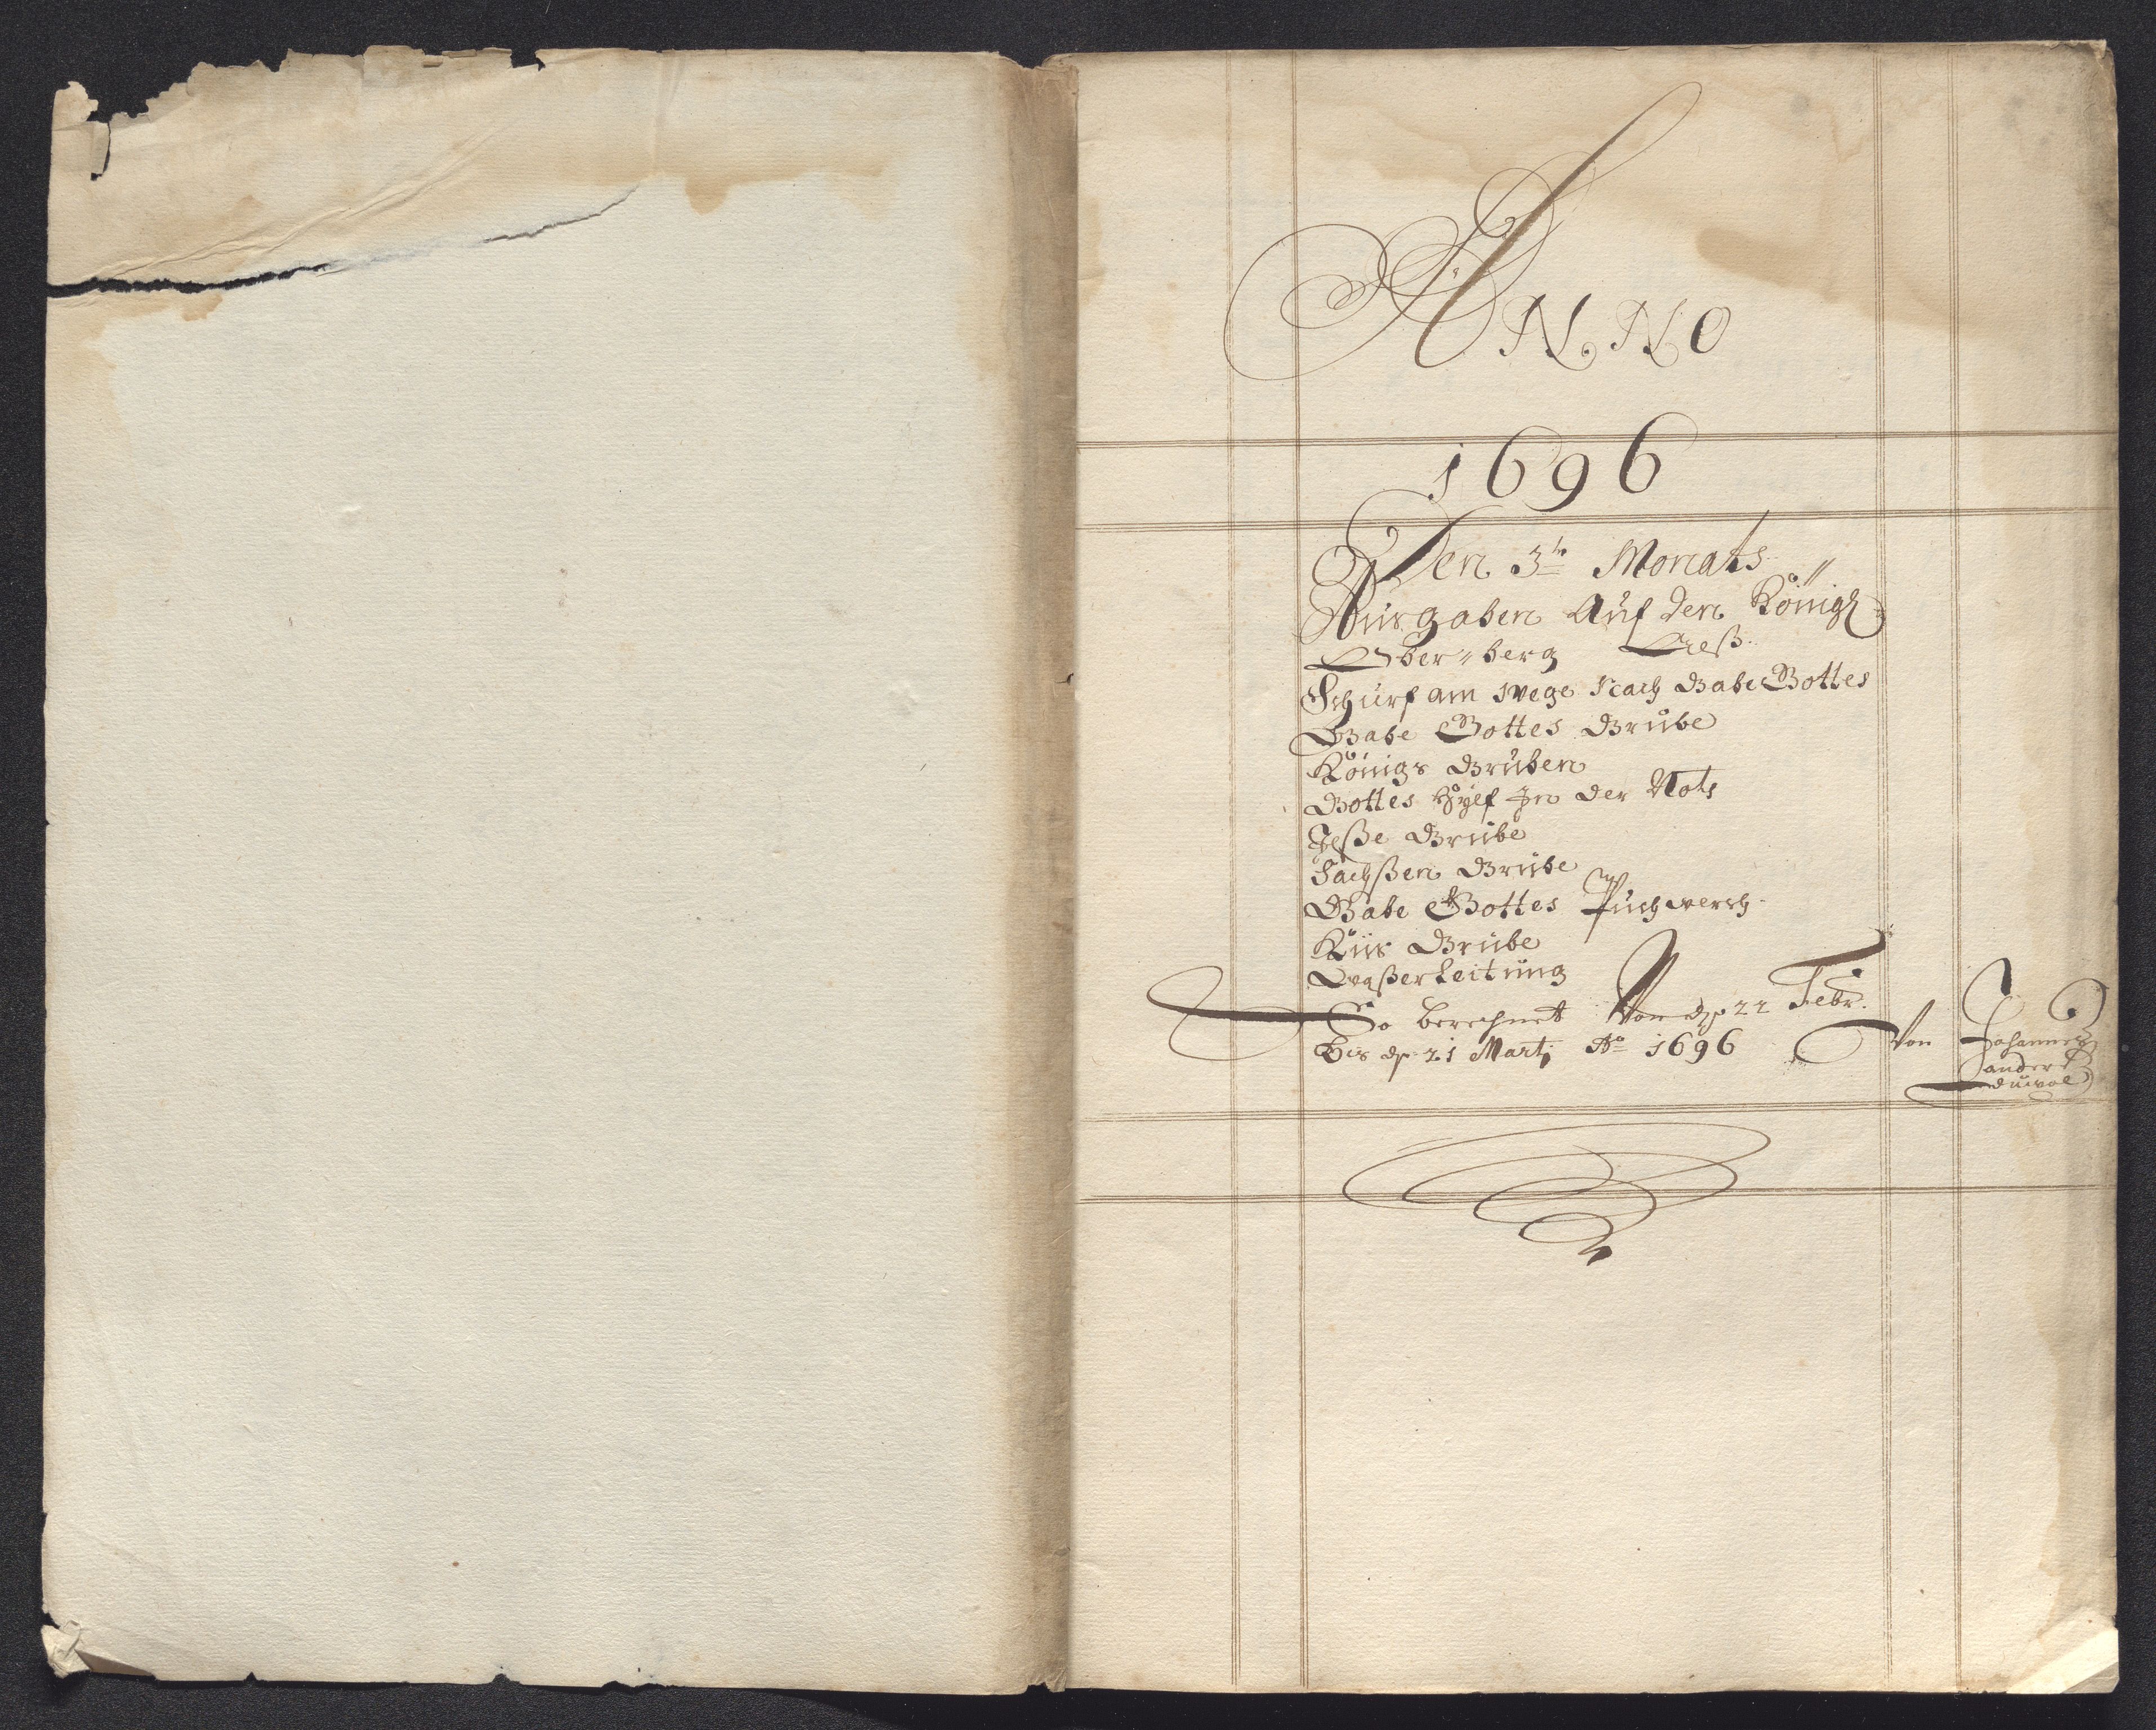 ANNO
1696
Den 3te Monats
Ausgaben Auf den Königl
Ober-berg
Schurf am Wege Nach Gabe Gottes
Gabe Gottes Grube
Königs Gruben
Gottes Hylf In der Noht
Grube
Sachßen Grube
Gabe Gottes Puchwerch
Grube
Waßerleitung
So berechnet Von d 22 Febr.
Bis d 21 Marti Ao 1696 Von Johannes